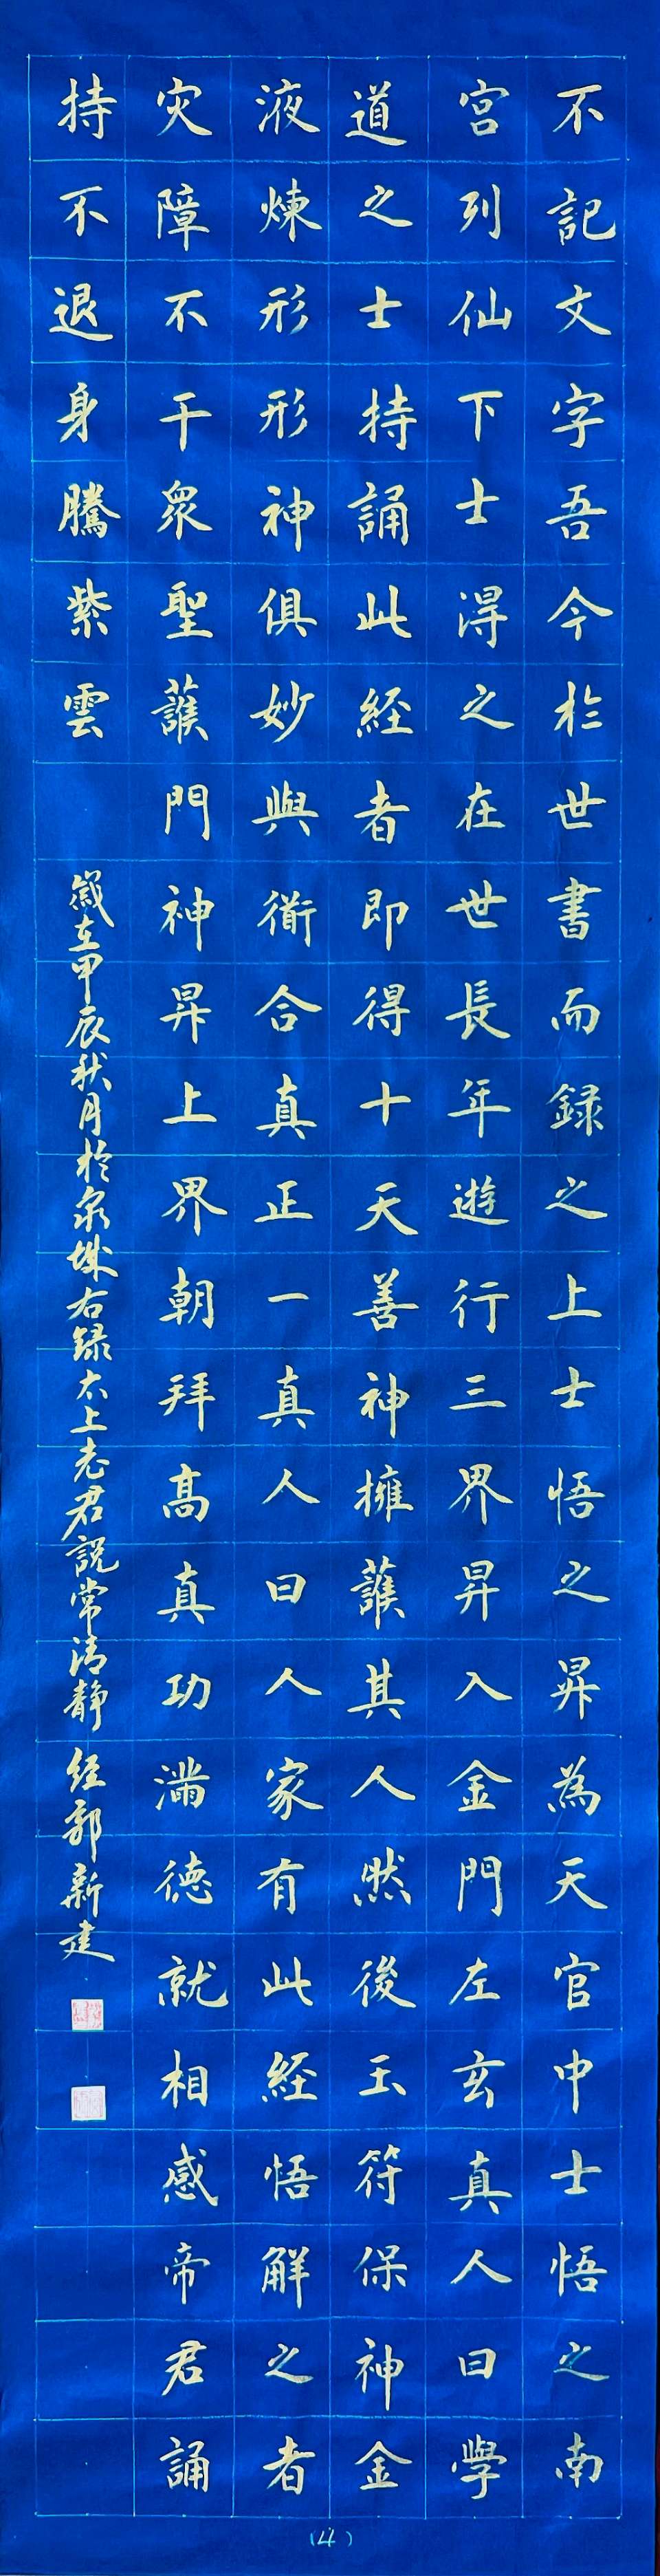 不記文字吾今於世書而録之上士悟之昇為天官中士悟之南
宮列仙下士淂之在世長年遊行三界昇入金門左玄真人曰學
道之士持誦此経者即得十天善神擁護其人然後玉符保神金
液煉形形神俱妙與衟合真正一真人曰人家有此経悟解之者
灾障不干衆聖護門神昇上界朝拜高真功滿德就相感帝君誦
持不退身騰紫雲
歲在甲辰秋月於泉城右録太上老君説常清静経郭新建
(4)